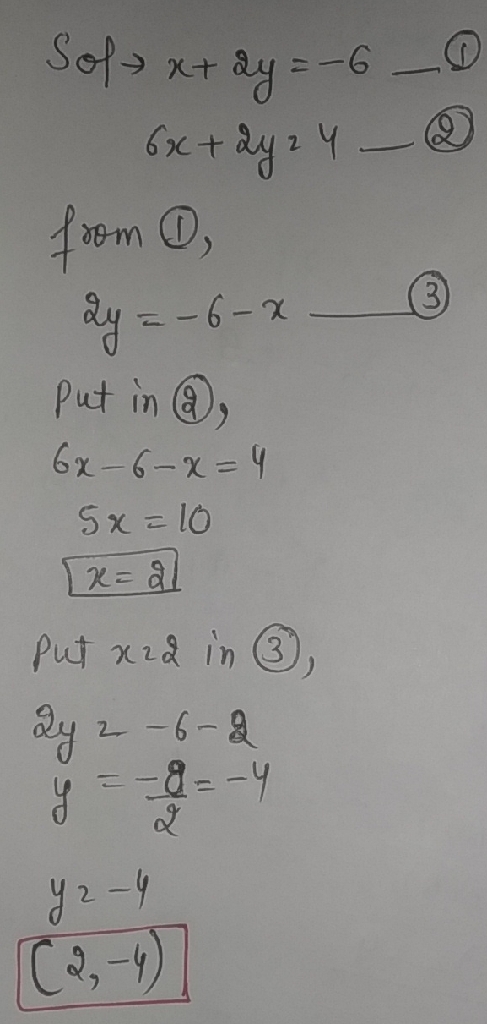 Sol→ x+2y=-6 — ①
6x+2y=4 — ②
from ①,
2y=-6-x — ③
Put in ②,
6x-6-x=4
5x=10
x=2
Put x=2 in ③,
2y=-6-2
y=-8/2=-4
y=-4
(2,-4)